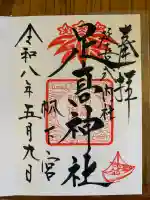 奉拝
足高神社
帆下宮
令和八年五月九日